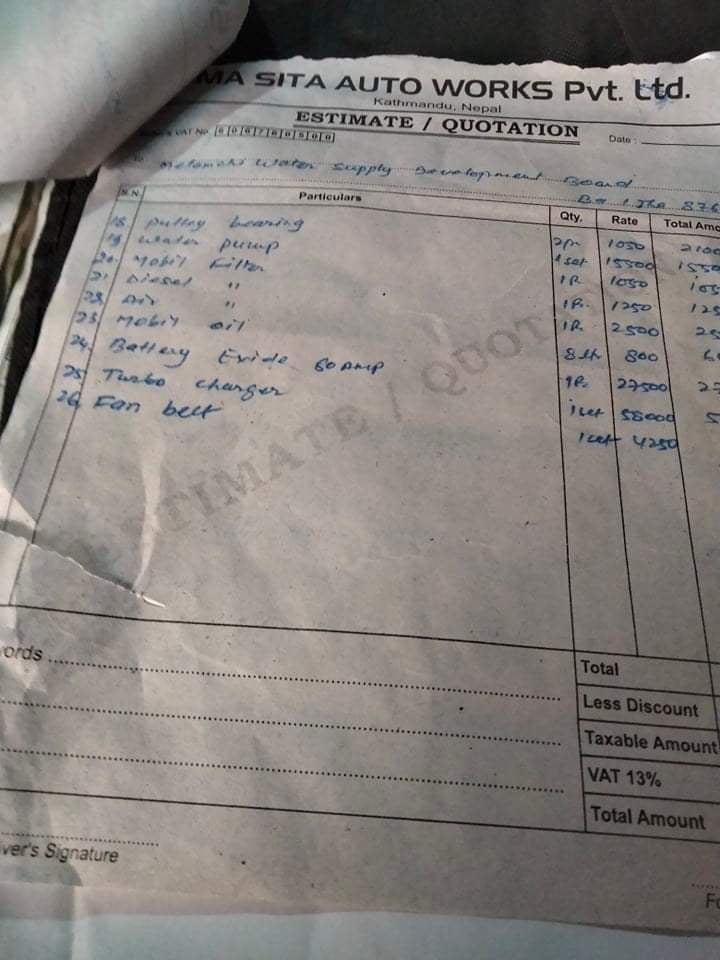 MA SITA AUTO WORKS Pvt. Ltd.
Kathmandu, Nepal
ESTIMATE / QUOTATION
VAT No. Date :
Melamchi Water Supply Development Board
Ba 1 Jha 876
S.N. Particulars Qty. Rate Total Amo
18. pulley bearing 2pc 1050 2100
19. Water pump 1set 15500 1550
20. Mobil Filter 1P. 1050 105
21. Diesel " 1P. 1250 125
22. Air " 1P. 2500 25
23. Mobil oil 8 ltr 800 6
24. Battery Exide 60 Amp 1P. 27500 2
25. Turbo charger 1set 58000 5
26. Fan belt 1set 4250
ESTIMATE / QUOT
ords
Total
Less Discount
Taxable Amount
VAT 13%
Total Amount
ver's Signature
Fo